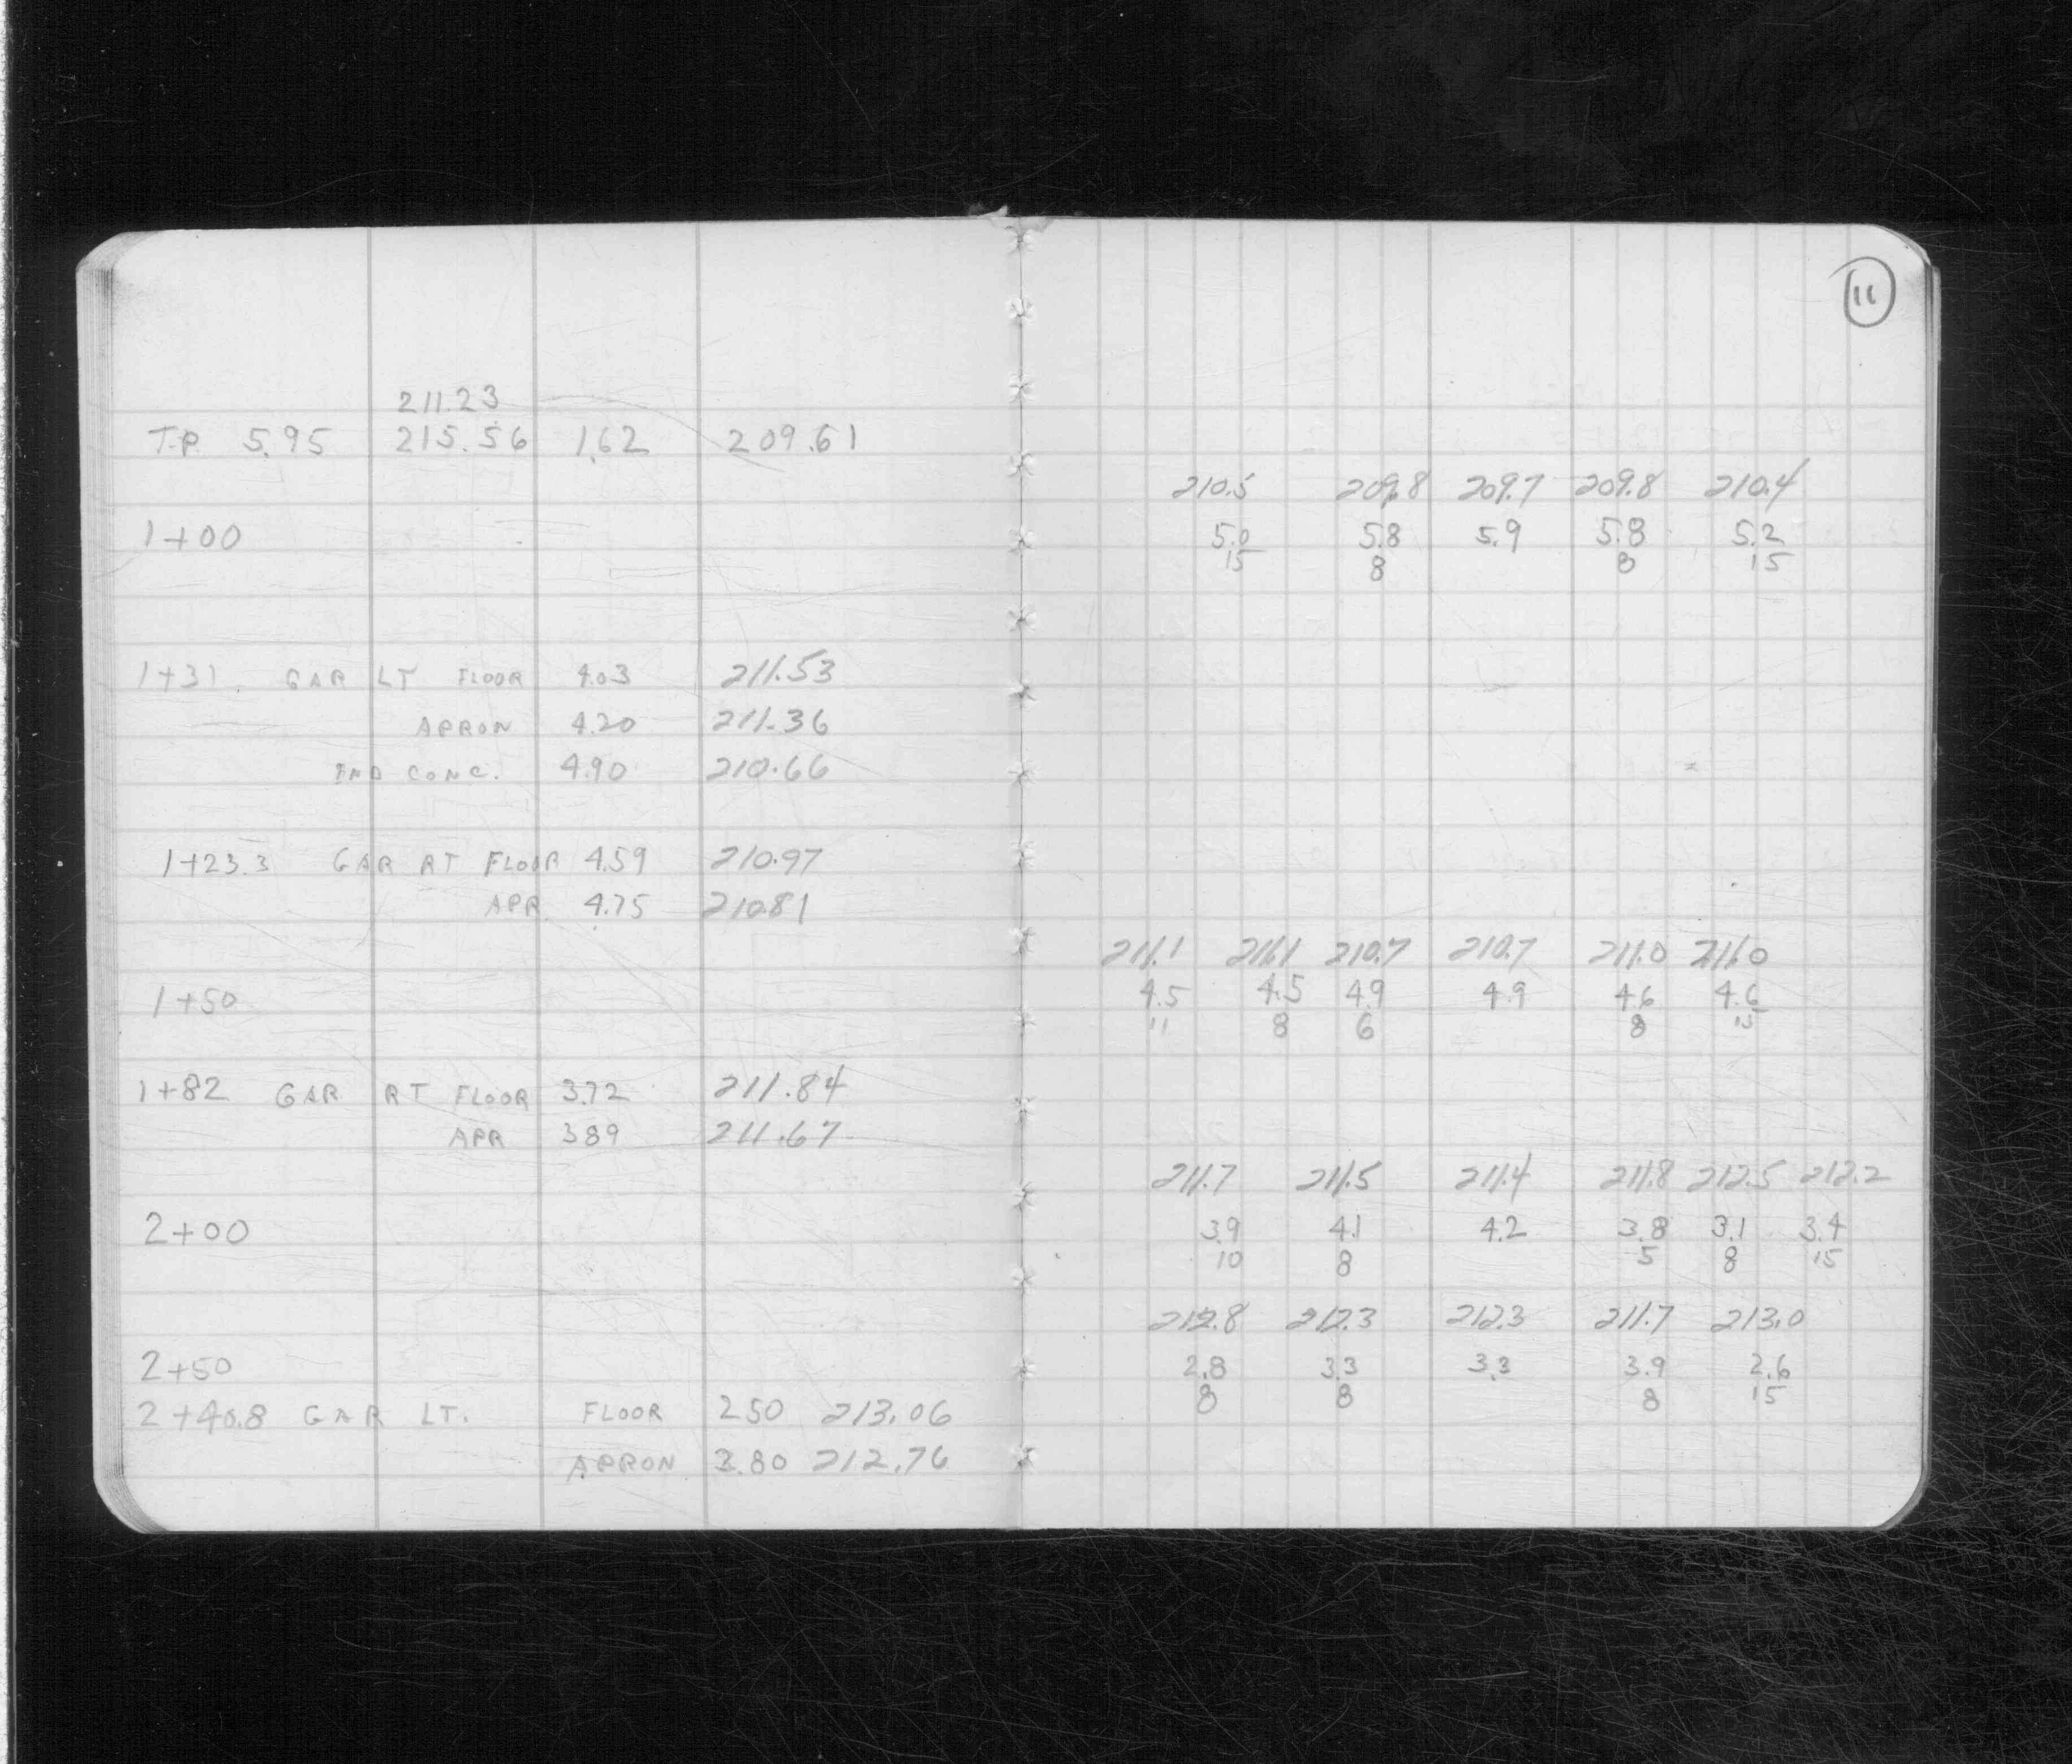 11
211.23
T.P. 5.95 215.56 1.62 209.61
210.5 209.8 209.7 209.8 210.4
1+00 5.0 5.8 5.9 5.8 5.2
15 8 8 15
1+31 GAR LT FLOOR 4.03 211.53
APRON 4.20 211.36
END CONC. 4.90 210.66
1+23.3 GAR RT FLOOR 4.59 210.97
APR. 4.75 210.81
211.1 211.1 210.7 210.7 211.0 211.0
1+50 4.5 4.5 4.9 4.9 4.6 4.6
11 8 6 8 15
1+82 GAR RT FLOOR 3.72 211.84
APR 3.89 211.67
211.7 211.5 211.4 211.8 212.5 212.2
2+00 3.9 4.1 4.2 3.8 3.1 3.4
10 8 5 8 15
212.8 212.3 212.3 211.7 213.0
2+50 2.8 3.3 3.3 3.9 2.6
8 8 8 15
2+40.8 GAR LT. FLOOR 2.50 213.06
APRON 2.80 212.76